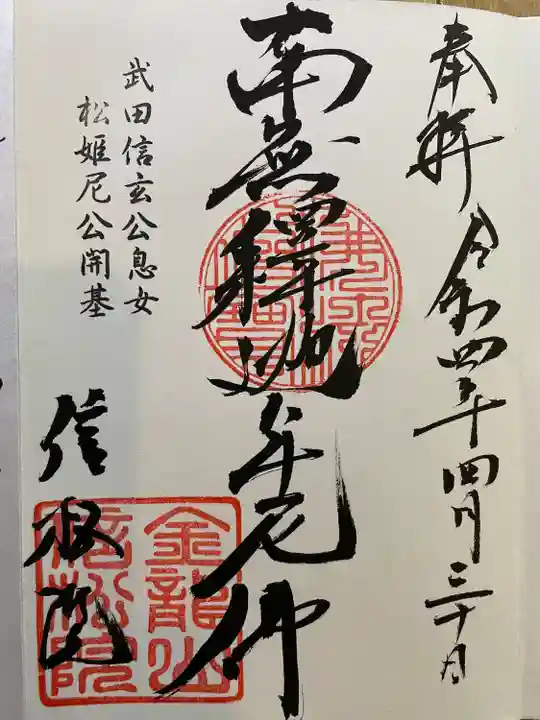 奉拝 令和四年四月三十日
南無釋迦牟尼仏
武田信玄公息女
松姫尼公開基
信松院
金龍山
信松院